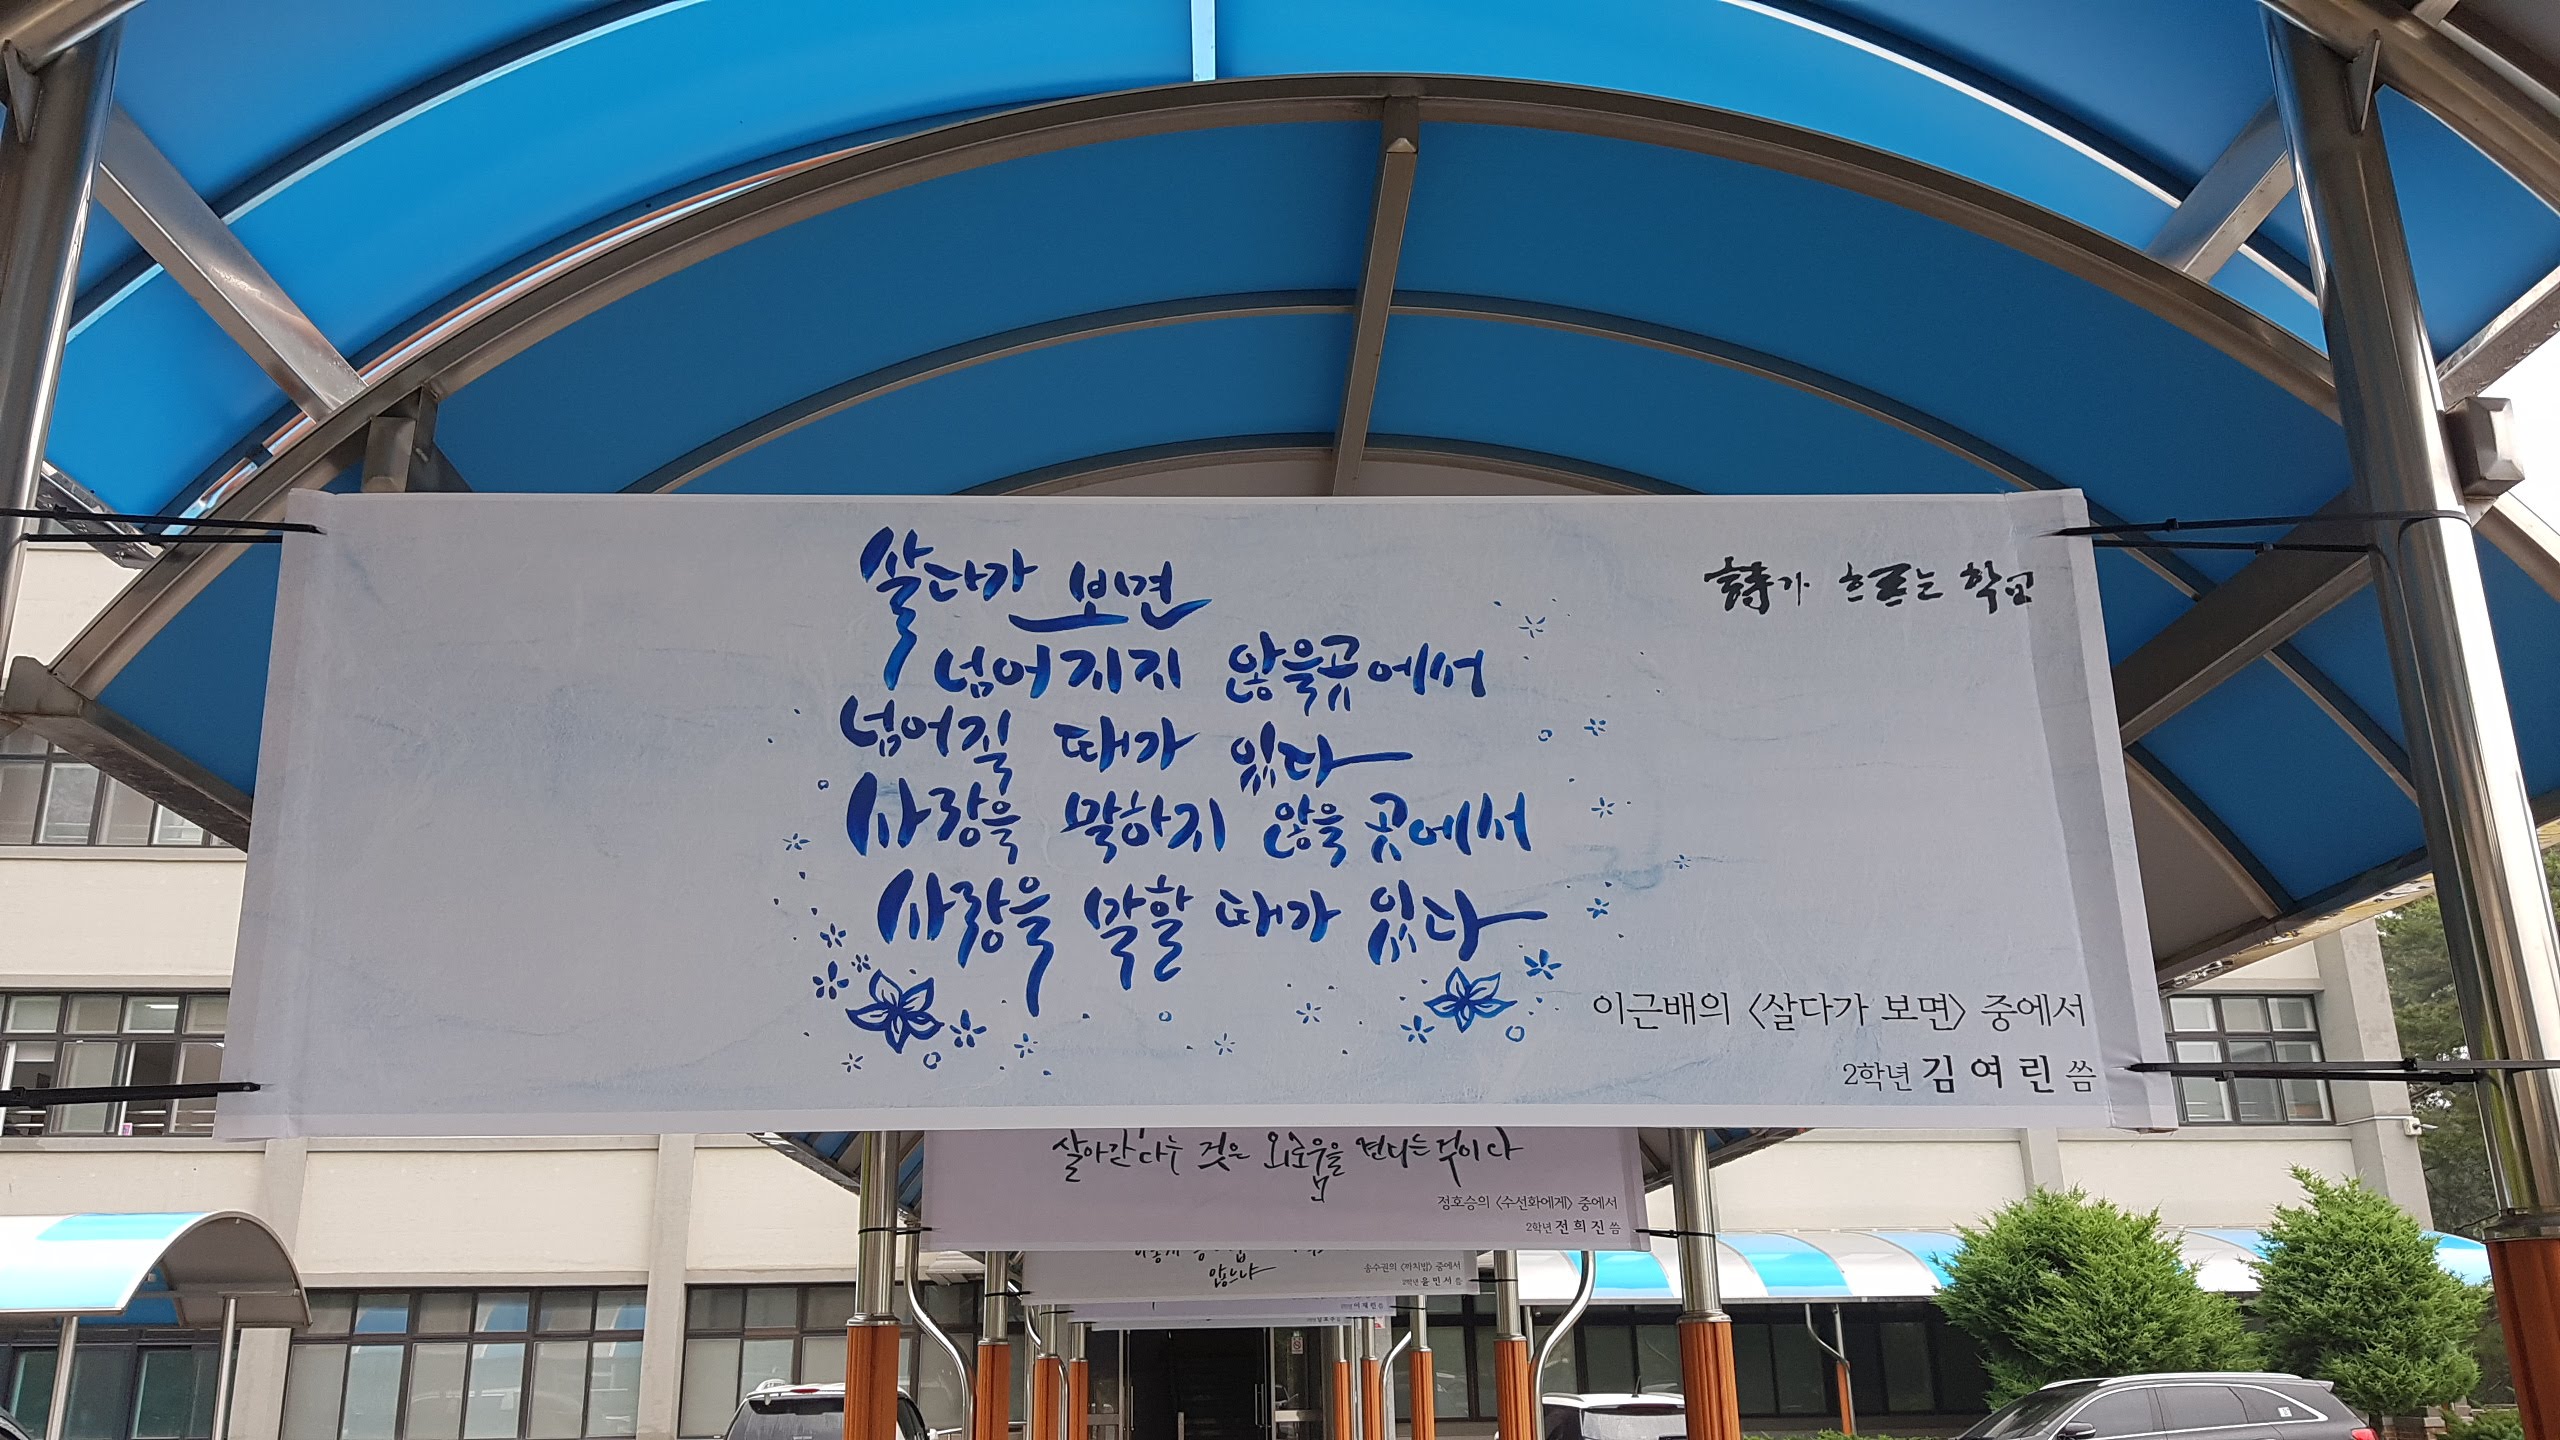 살다가 보면
넘어지지 않을 곳에서
넘어질 때가 있다
사랑을 말하지 않을 곳에서
사랑을 말할 때가 있다
詩가 흐르는 학교
이근배의 〈살다가 보면〉 중에서
2학년 김여린 씀
살아간다는 것은 외로움을 견디는 것이다
정호승의 〈수선화에게〉 중에서
2학년 전희진 씀
않으냐
송수권의 〈까치밥〉 중에서
2학년 윤민서 씀